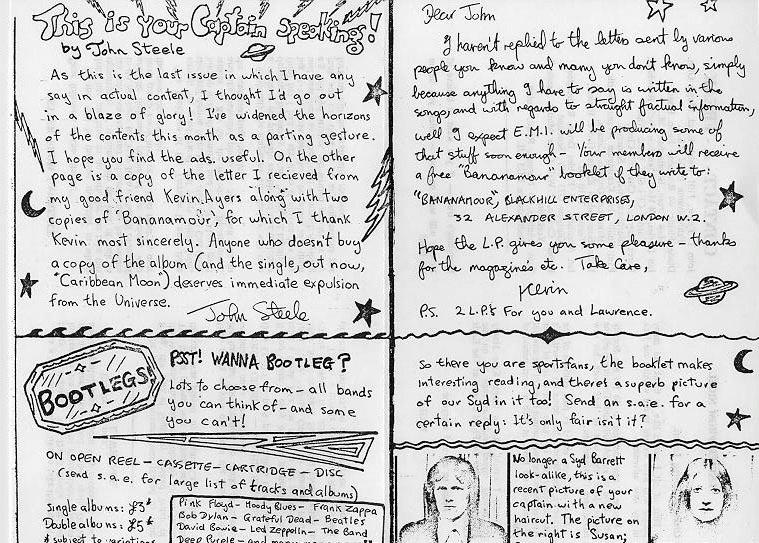 This is your Captain speaking!
by John Steele
As this is the last issue in which I have any
say in actual content, I thought I'd go out
in a blaze of glory! I've widened the horizons
of the contents this month as a parting gesture.
I hope you find the ads. useful. On the other
page is a copy of the letter I recieved from
my good friend Kevin Ayers along with two
copies of 'Bananamour', for which I thank
Kevin most sincerely. Anyone who doesn't buy
a copy of the album (and the single, out now,
"Caribbean Moon") deserves immediate expulsion
from the Universe.
John Steele
BOOTLEGS!
PSST! WANNA BOOTLEG?
Lots to choose from – all bands
you can think of – and some
you can't!
ON OPEN REEL – CASSETTE – CARTRIDGE – DISC
(send s.a.e. for large list of tracks and albums)
Single albums: £3*
Double albums: £5*
* subject to variations
Pink Floyd – Moody Blues – Frank Zappa
Bob Dylan – Grateful Dead – Beatles
David Bowie – Led Zeppelin – The Band
Deep Purple – and many
Dear John
I haven't replied to the letters sent by various
people you know and many you don't know, simply
because anything I have to say is written in the
songs, and with regards to straight factual information,
well I expect E.M.I. will be producing some of
that stuff soon enough – Your members will receive
a free "Bananamour" booklet if they write to:
"BANANAMOUR", BLACKHILL ENTERPRISES,
32 ALEXANDER STREET, LONDON W.2.
Hope the L.P. gives you some pleasure – thanks
for the magazines etc. Take Care,
Kevin
P.S. 2 L.P.s For you and Lawrence.
So there you are sportsfans, the booklet makes
interesting reading, and there's a superb picture
of our Syd in it too! Send an s.a.e. for a
certain reply: It's only fair isn't it?
No longer a Syd Barrett
look-alike, this is a
recent picture of your
captain with a new
haircut. The picture on
the right is Susan;